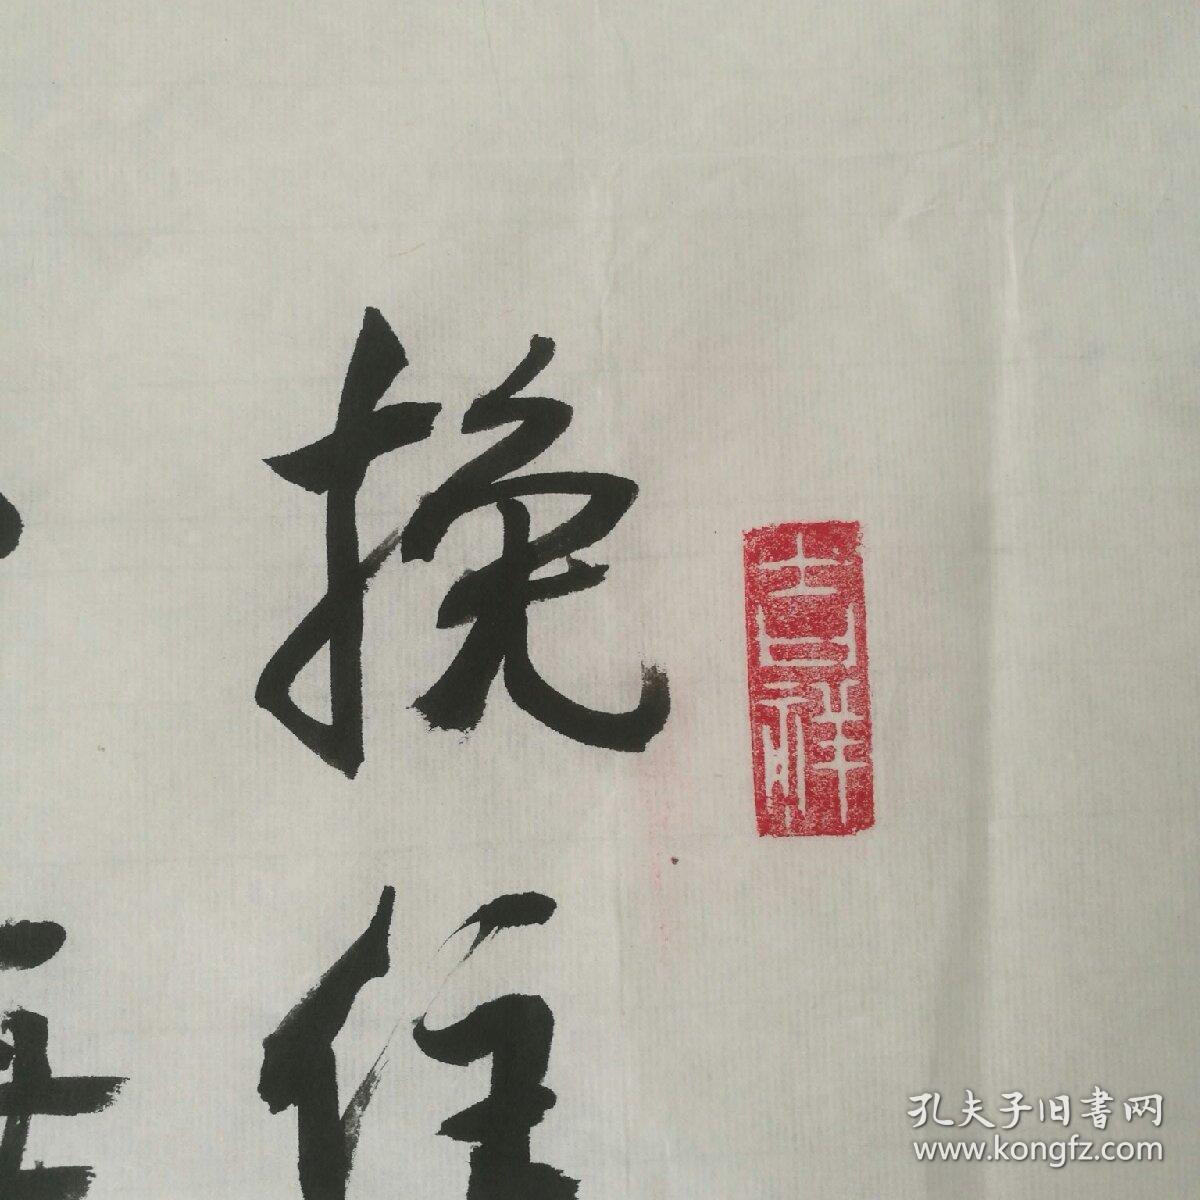 挽住
吉祥
孔夫子旧書网
www.kongfz.com